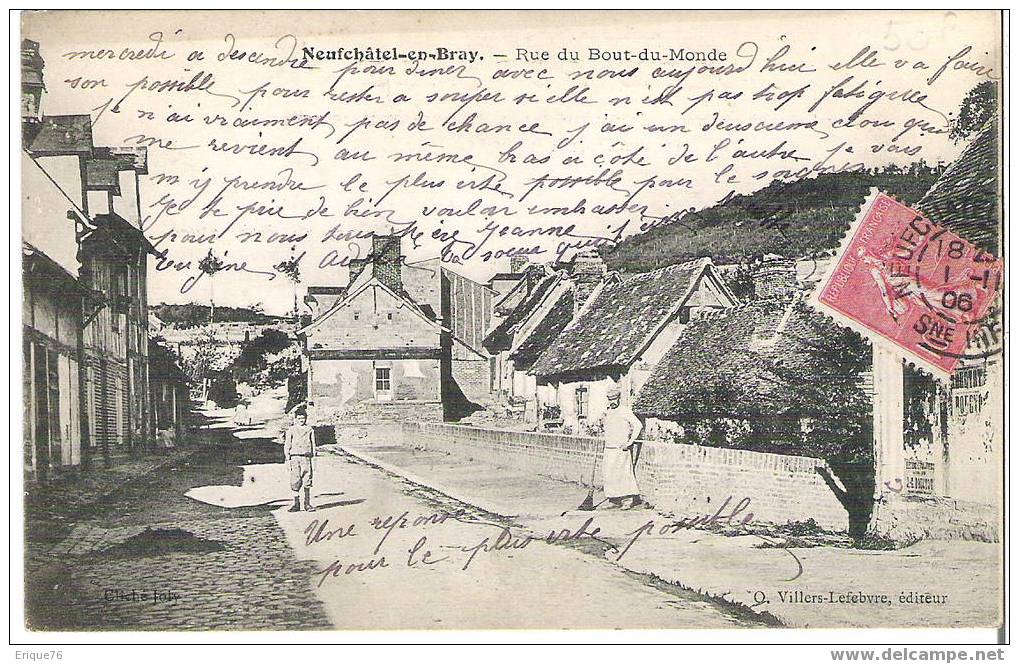 Neufchâtel-en-Bray. — Rue du Bout-du-Monde
mercredi a descendre pour diner avec nous aujourd'hui elle va faire
son possible pour rester a souper si elle n'est pas trop fatiguee
je n'ai vraiment pas de chance j'ai un deuxieme clou qui
me revient au même bras a côté de l'autre je vais
m'y prendre le plus vite possible pour le soigner
Je te prie de bien vouloir embrasser
pour nous tous Jeanne
Ta soeur qui
Eugénie
Une repon
pour le plus vite possible
REPUBLIQUE FRANÇAISE
NEUFC
18
1 - 11
06
SNE INF
Cliché Joly
O. Villers-Lefebvre, éditeur
Erique76
www.delcampe.net